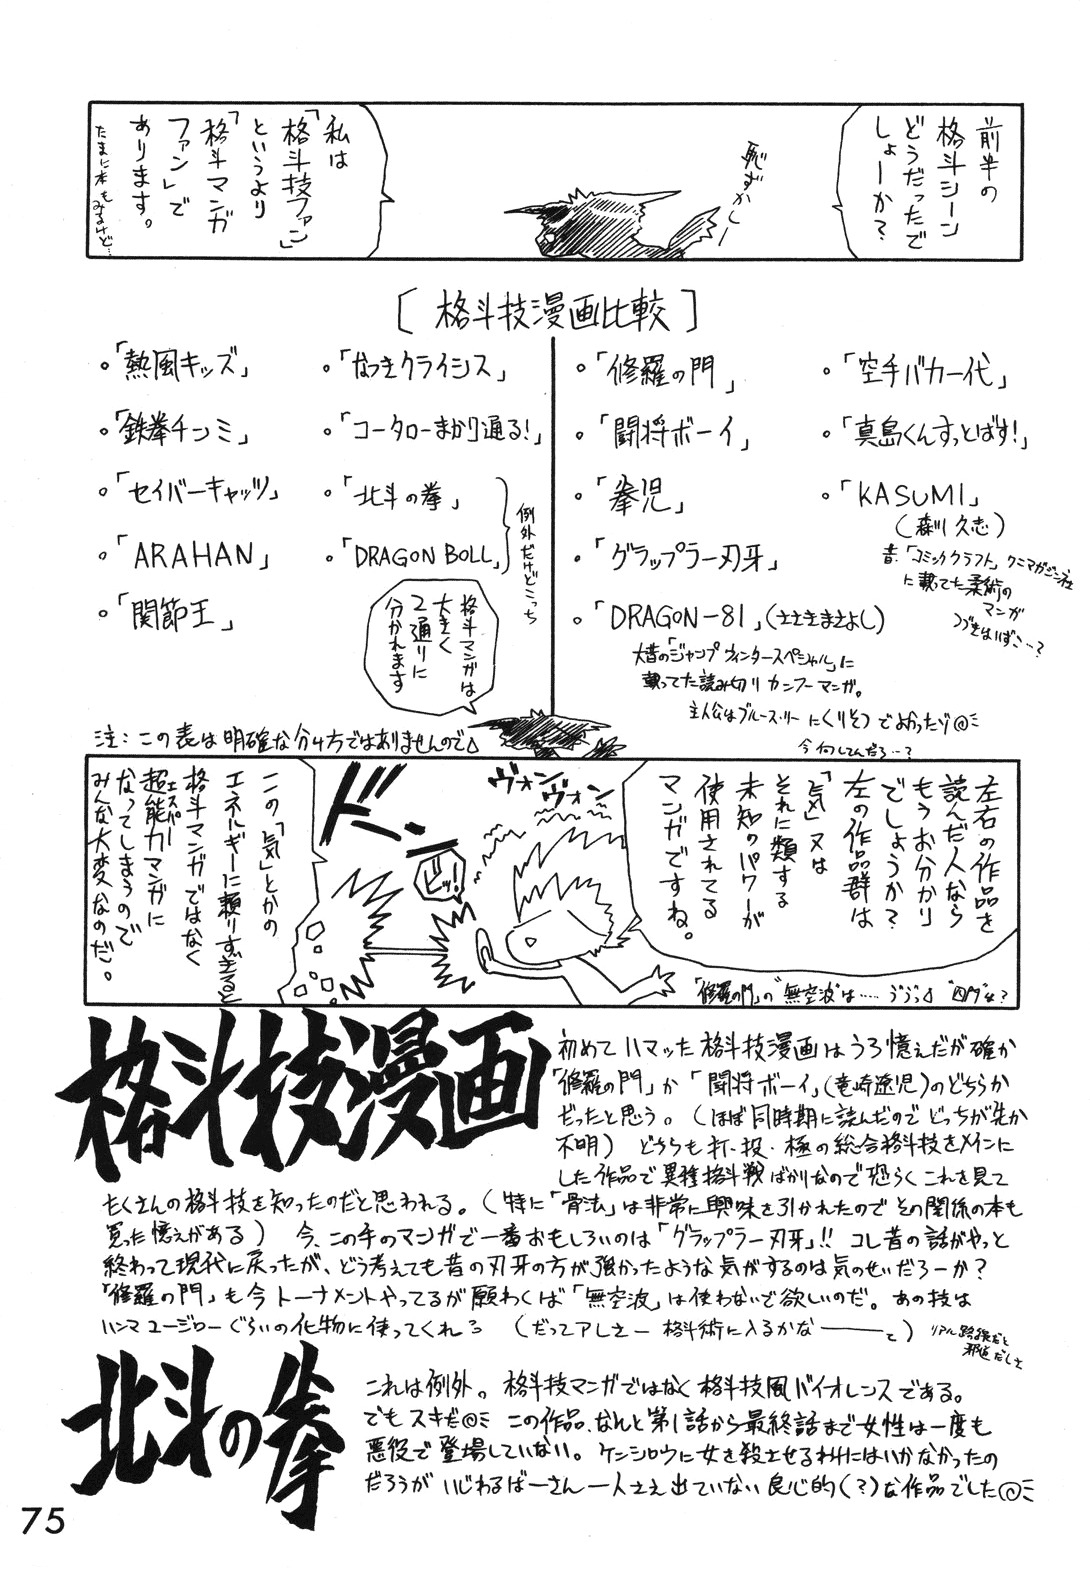 前半の
格斗シーン
どうだったで
しょーか?
恥ずかしー
私は
「格斗技ファン」
というより
「格斗マンガ
ファン」で
あります。
たまに本もみるけど…
[格斗技漫画比較]
・「熱風キッズ」
・「鉄拳チンミ」
・「セイバーキャッツ」
・「ARAHAN」
・「関節王」
・「なつきクライシス」
・「コータローまかり通る!」
・「北斗の拳」
・「DRAGON BOLL」
例外だけどこっち
格斗マンガは
大きく
2通りに
分かれます
・「修羅の門」
・「闘将ボーイ」
・「拳児」
・「グラップラー刃牙」
・「DRAGON-81」(ささきまさよし)
大昔の「ジャンプ ウィンタースペシャル」に
載ってた読み切りカンフーマンガ。
主人公はブルース・リーにくりそつでよかったゾ
今何してんだろ…?
・「空手バカ一代」
・「真島くんすっとばす!」
・「KASUMI」
(森川久志)
昔「コミッククラフト」クニマガジン社
に載ってた柔術の
マンガ
つづきはいずこ…?
注:この表は明確な分け方ではありませんので
左右の作品を
読んだ人なら
もうお分かり
でしょうか?
左の作品群は
「気」又は
それに類する
未知のパワーが
使用されてる
マンガですね。
「修羅の門」の"無空波"は……
ヴォン
ヴォン
ビッ!
ドーン
この「気」とかの
エネルギーに頼りすぎると
格斗マンガではなく
超能力マンガに
エスパー
なってしまうので
みんな大変なのだ。
格斗技漫画
初めてハマッた格斗技漫画はうろ憶えだが確か
「修羅の門」か「闘将ボーイ」(竜崎遼児)のどちらか
だったと思う。(ほぼ同時期に読んだのでどっちが先か
不明) どちらも打・投・極の総合格斗技をメインに
した作品で異種格斗戦ばかりなので恐らくこれを見て
たくさんの格斗技を知ったのだと思われる。(特に「骨法」は非常に興味を引かれたのでその関係の本も
買った憶えがある) 今、この手のマンガで一番おもしろいのは「グラップラー刃牙」!! コレ昔の話がやっと
終わって現代に戻ったが、どう考えても昔の刃牙の方が強かったような気がするのは気のせいだろーか?
「修羅の門」も今トーナメントやってるが願わくば「無空波」は使わないで欲しいのだ。あの技は
ハンマユージローぐらいの化物に使ってくれ (だってアレさー格斗術に入るかなーーーと)
リアル路線だと
邪道だしさ
北斗の拳
これは例外。格斗技マンガではなく格斗技風バイオレンスである。
でもスキだ この作品、なんと第1話から最終話まで女性は一度も
悪役で登場していない。ケンシロウに女を殺させるわけにはいかなかったの
だろうが いじわるばーさん一人さえ出ていない良心的(?)な作品でした
75